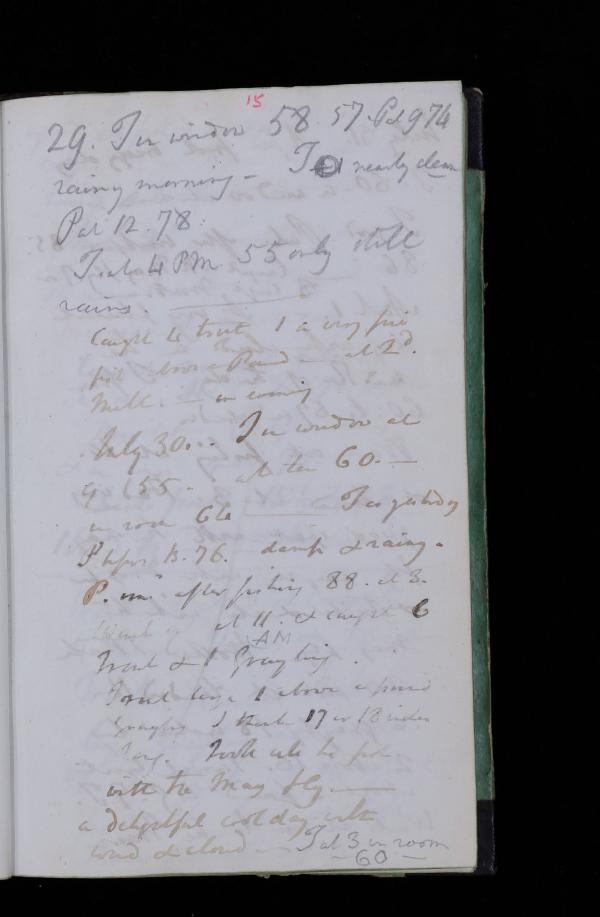 15
29. T in window 58. 57. P at 9 74
rainy morning – T nearly clean
P at 12. 78.
T at 4 PM 55 only still
rains.
Caught 4 trout 1 a very fine
fish above a Pound — at 2d.
Mill. — in evening
July 30. T in window at
9 (55 – at ten 60. —
in room 66 — T as yesterday
P before B. 76. damp & rainy.
P. after fishing 88. at 3.
at 11. & caught 6
AM
Trout & 1 Grayling.
Trout large 1 above a pound
Grayling I think 17 or 18 inches
long. Took all the fish
with the May fly. —
a delightful cool day with
wind & cloud — T at 3 in room
– 60 –